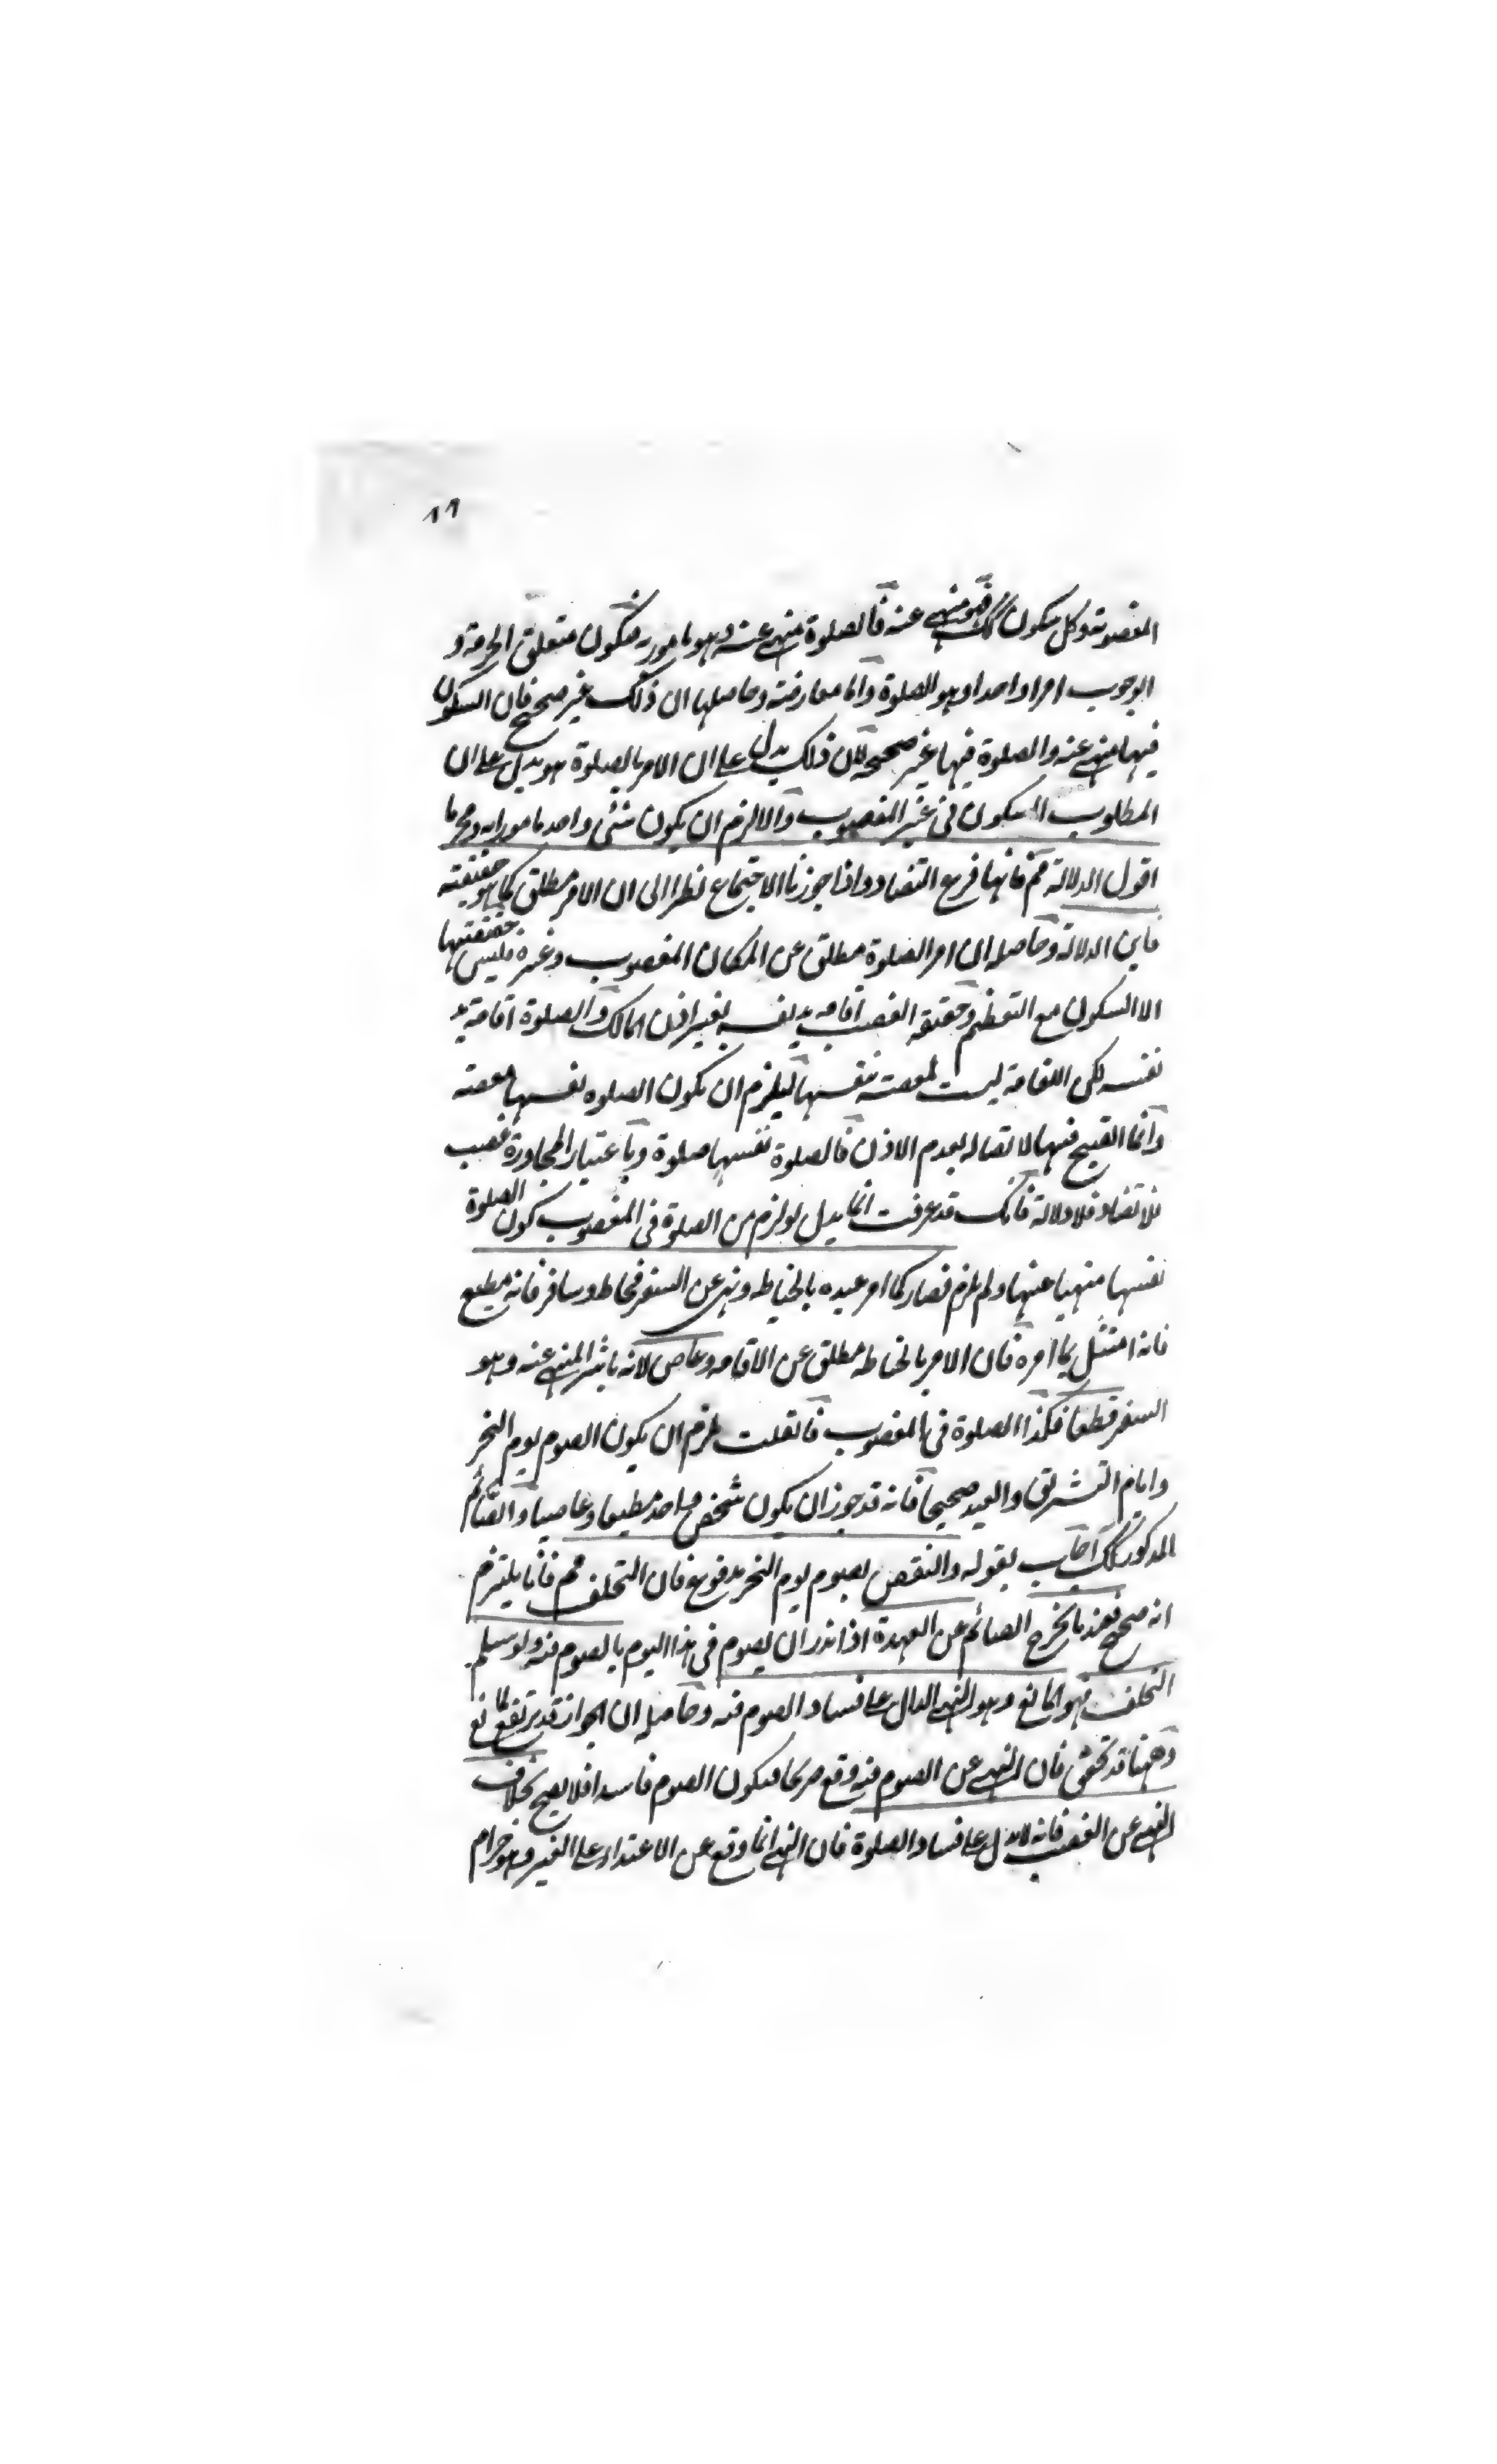 ١١
المغصوبة وكل سكون كك فهو منهي عنه فالصلوة منهي عنه وهو مامور به فيكون متعلق الحرمة و
الوجوب امرا واحدا وهو الصلوة واما معارضة وحاصلها ان ذلك غير صحيح فان السكون
فيها منهي عنه والصلوة فيها غير صحيحة لان ذلك يدل على ان الامر بالصلوة هو يدل على ان
المطلوب السكون في غير المغصوب والا لزم ان يكون شئ واحد مامورا به ومحرما
اقول الدلالة مم فانها فرع التضاد واذا جوزنا الاجتماع نظرا الى ان الامر مطلق كما هو حقيقته
فاين الدلالة وحاصله ان امر الصلوة مطلق عن المكان المغصوب وغيره فليس حقيقتها
الا السكون مع التعظيم وحقيقة الغصب اقامة يد نفسه بغير اذن المالك والصلوة اقامة يد
نفسه لكن الاقامة ليست لمعصية نفسها ليلزم ان يكون الصلوة نفسها معصية
وانما القبح فيها لاتصاله بعدم الاذن فالصلوة نفسها صلوة وباعتبار المجاورة غصب
فلا تضاد فلا دلالة فانك قد عرفت انما يدل لو لزم من الصلوة في المغصوب كون الصلوة
نفسها منهيا عنها ولم يلزم فصار كما امر عبده بالخياطة ونهى عن السفر فخاط وسافر فانه مطيع
فانه امتثل بما امره فان الامر بالخياطة مطلق عن الاقامة وعاص لانه باشر المنهي عنه وهو
السفر قطعا فكذا الصلوة في المغصوب فان قلت يلزم ان يكون الصوم يوم النحر
وايام التشريق والعيد صحيحا فانه قد جوز ان يكون شخص واحد مطيعا وعاصيا والصائم
المذكور كك اجاب بقوله والنقض بصوم يوم النحر مدفوع فان التخلف مم فانا نلتزم
انه صحيح فعندنا يخرج الصائم عن العهدة اذا نذر ان يصوم في هذا اليوم بالصوم فيه ولو سلم
التخلف فهو لمانع وهو النهي الدال على فساد الصوم فيه وحاصله ان الجواز قد يرتفع لمانع
وههنا قد تحقق فان النهي عن الصوم فيه وقع صريحا فيكون الصوم فاسدا فلا يصح بخلاف
النهي عن الغصب فانه لا يدل على فساد الصلوة فان النهي انما وقع عن الاعتداء على الغير وهو حرام